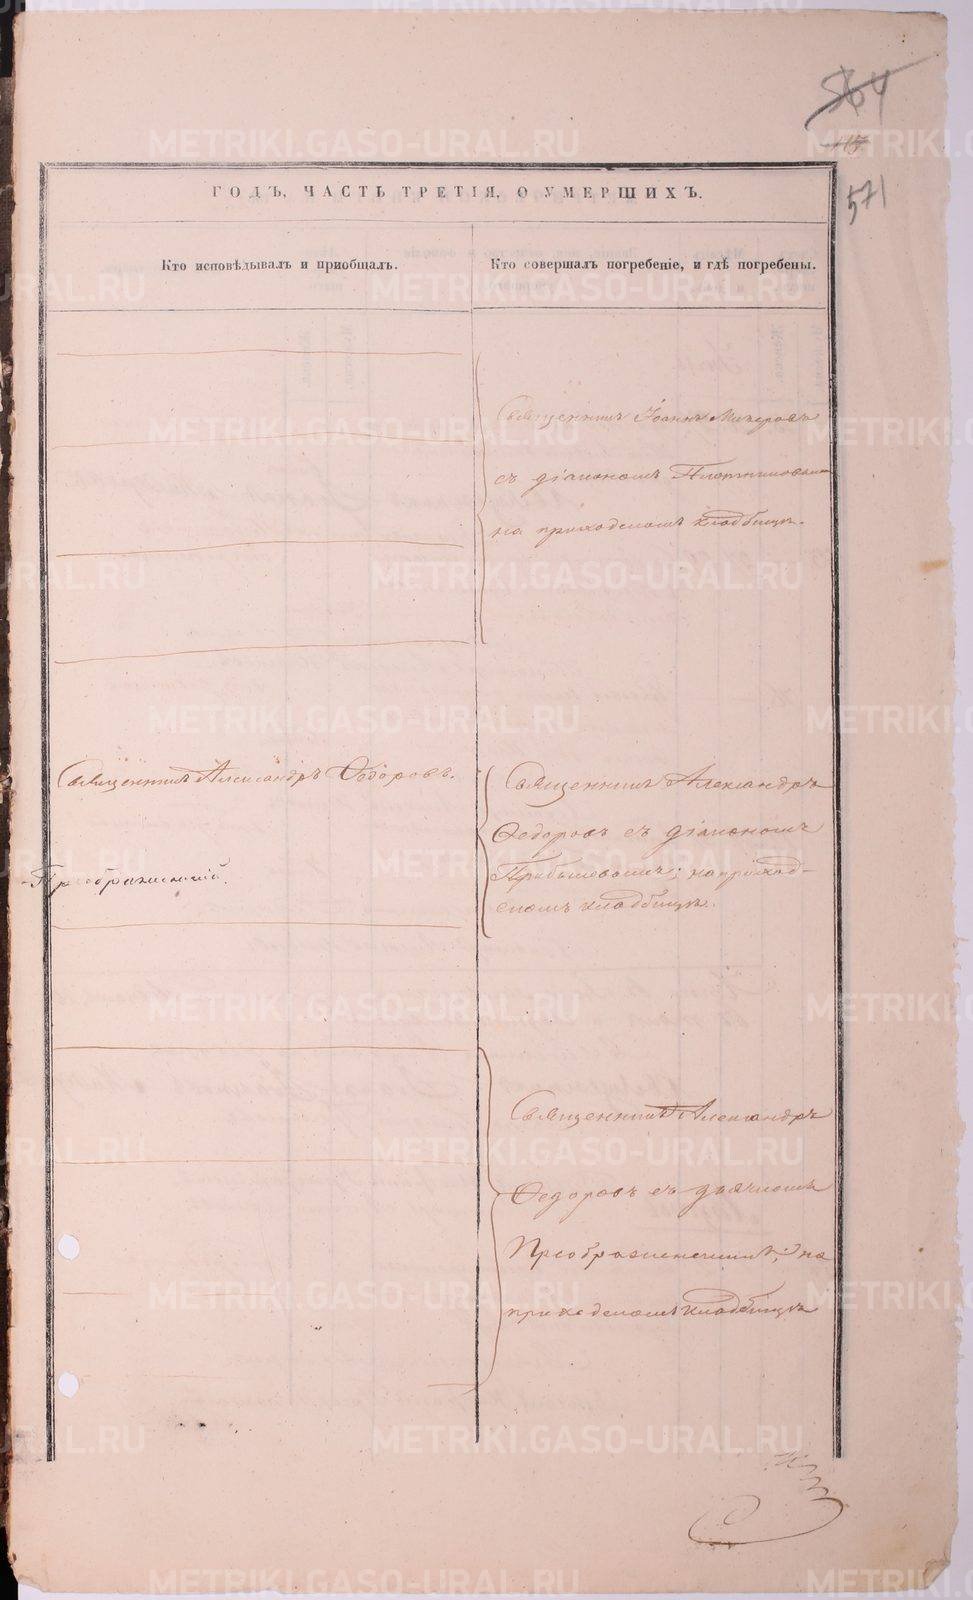 564
115
571
ГОДЪ, ЧАСТЬ ТРЕТІЯ, О УМЕРШИХЪ.
Кто исповѣдывалъ и пріобщалъ.
Кто совершалъ погребеніе, и гдѣ погребены.
Священникъ Іоаннъ
съ діакономъ Плотниковымъ
на приходскомъ кладбищѣ.
Священникъ Александръ Ѳедоровъ.
Преображенскій.
Священникъ Александръ
Ѳедоровъ съ діакономъ
на приход-
скомъ кладбищѣ.
Священникъ Александръ
Ѳедоровъ съ дьячкомъ
Преображенскимъ; на
приходскомъ кладбищѣ
METRIKI.GASO-URAL.RU